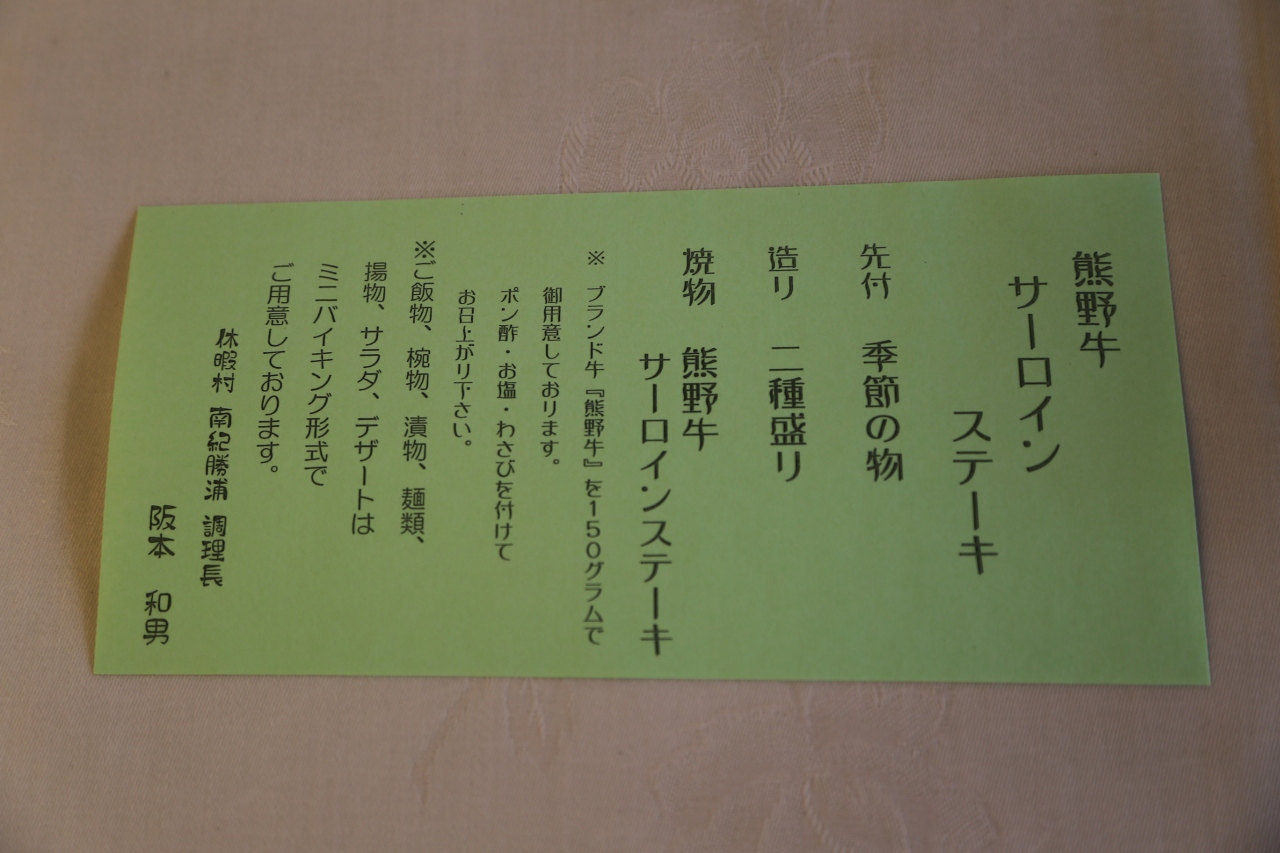 熊野牛
サーロイン
ステーキ
先付　季節の物
造り　二種盛り
焼物　熊野牛
サーロインステーキ
※　ブランド牛『熊野牛』を150グラムで
御用意しております。
ポン酢・お塩・わさびを付けて
お召上がり下さい。
※ご飯物、椀物、漬物、麺類、
揚物、サラダ、デザートは
ミニバイキング形式で
ご用意しております。
休暇村　南紀勝浦　調理長
阪本　和男